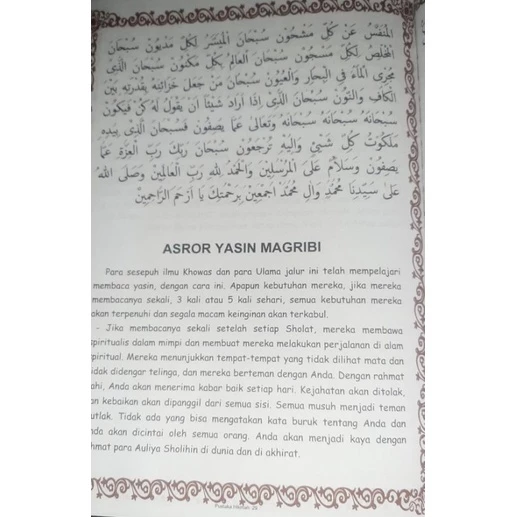 الْمُنَفِّسُ عَنْ كُلِّ مَشْحُوْنٍ سُبْحَانَ الْمُيَسِّرِ لِكُلِّ مَدْيُوْنٍ سُبْحَانَ
الْمُخَلِّصِ لِكُلِّ مَسْجُوْنٍ سُبْحَانَ الْعَالِمِ بِكُلِّ مَكْنُوْنٍ سُبْحَانَ الَّذِى
مُجْرِى الْمَآءِ فِي الْبِحَارِ وَالْعُيُوْنِ سُبْحَانَ مَنْ جَعَلَ خَزَائِنَهُ بِقُدْرَتِهِ بَيْنَ
الْكَافِ وَالنُّوْنِ سُبْحَانَ الَّذِىْ إِذَا اَرَادَ شَيْئًا اَنْ يَقُوْلَ لَهُ كُنْ فَيَكُوْنُ
سُبْحَانَهُ سُبْحَانَهُ سُبْحَانَهُ وَتَعَالٰى عَمَّا يَصِفُوْنَ فَسُبْحَانَ الَّذِىْ بِيَدِهِ
مَلَكُوْتُ كُلِّ شَيْئٍ وَاِلَيْهِ تُرْجَعُوْنَ سُبْحَانَ رَبِّكَ رَبِّ الْعِزَّةِ عَمَّا
يَصِفُوْنَ وَسَلاَمٌ عَلَى الْمُرْسَلِيْنَ وَالْحَمْدُ لِلّٰهِ رَبِّ الْعَالَمِيْنَ وَصَلَّى اللهُ
عَلَى سَيِّدِنَا مُحَمَّدٍ وَاٰلِ مُحَمَّدٍ اَجْمَعِيْنَ بِرَحْمَتِكَ يَا اَرْحَمَ الرَّاحِمِيْنَ
ASROR YASIN MAGRIBI
Para sesepuh ilmu Khowas dan para Ulama jalur ini telah mempelajari
membaca yasin, dengan cara ini. Apapun kebutuhan mereka, jika mereka
membacanya sekali, 3 kali atau 5 kali sehari, semua kebutuhan mereka
akan terpenuhi dan segala macam keinginan akan terkabul.
- Jika membacanya sekali setelah setiap Sholat, mereka membawa
spiritualis dalam mimpi dan membuat mereka melakukan perjalanan di alam
spiritual. Mereka menunjukkan tempat-tempat yang tidak dilihat mata dan
tidak didengar telinga, dan mereka berteman dengan Anda. Dengan rahmat
ahi, Anda akan menerima kabar baik setiap hari. Kejahatan akan ditolak,
an kebaikan akan dipanggil dari semua sisi. Semua musuh menjadi teman
utlak. Tidak ada yang bisa mengatakan kata buruk tentang Anda dan
nda akan dicintai oleh semua orang. Anda akan menjadi kaya dengan
hmat para Auliya Sholihin di dunia dan di akhirat.